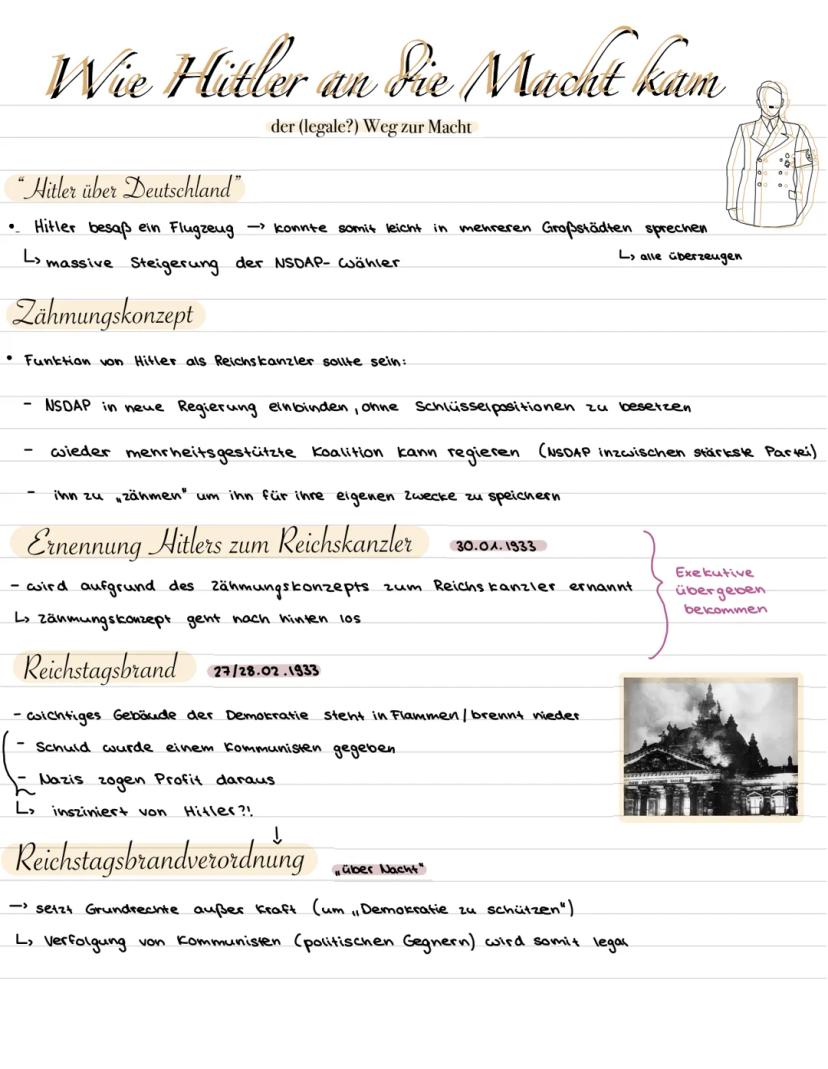 Wie Hitler an die Macht kam
der (legale?) Weg zur Macht
"Hitler über Deutschland"
• Hitler besaß ein Flugzeug → konnte somit leicht in mehreren Großstädten sprechen
↳ massive Steigerung der NSDAP- Wähler
↳ alle überzeugen
Zähmungskonzept
• Funktion von Hitler als Reichskanzler sollte sein:
- NSDAP in neue Regierung einbinden, ohne Schlüsselpositionen zu besetzen
- wieder mehrheitsgestützte Koalition kann regieren (NSDAP inzwischen stärkste Partei)
- ihn zu „zähmen" um ihn für ihre eigenen Zwecke zu speichern
Ernennung Hitlers zum Reichskanzler 30.01.1933
- wird aufgrund des Zähmungskonzepts zum Reichskanzler ernannt
↳ Zähmungskonzept geht nach hinten los
Exekutive
übergeben
bekommen
Reichstagsbrand 27/28.02.1933
- wichtiges Gebäude der Demokratie steht in Flammen / brennt nieder
- Schuld wurde einem Kommunisten gegeben
- Nazis zogen Profit daraus
↳ insziniert von Hitler?!
↓
Reichstagsbrandverordnung „über Nacht"
→ setzt Grundrechte außer Kraft (um „Demokratie zu schützen")
↳ Verfolgung von Kommunisten (politischen Gegnern) wird somit legal